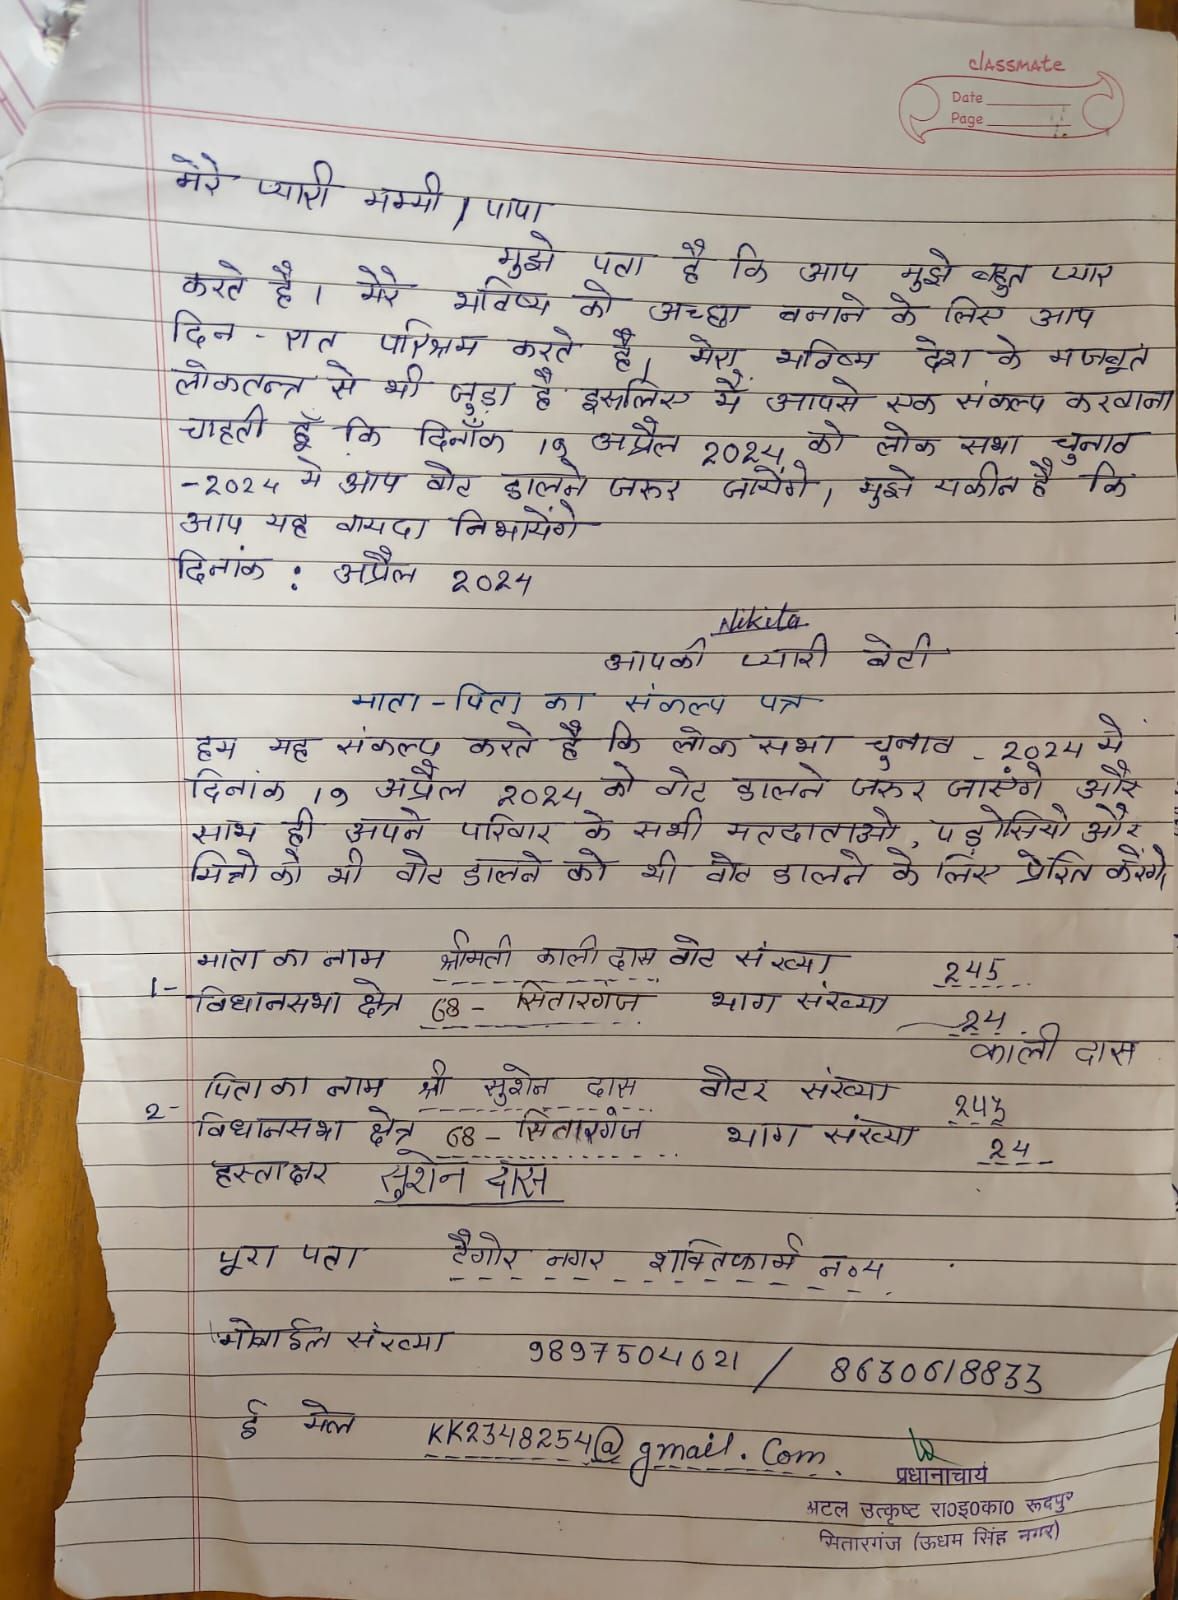 classmate
Date
Page
मेरे प्यारी मम्मी / पापा
मुझे पता है कि आप मुझे बहुत प्यार
करते है। मेरे भविष्य को अच्छा बनाने के लिए आप
दिन - रात परिश्रम करते है। मेरा भविष्य देश के मजबूत
लोकतन्त्र से भी जुड़ा है इसलिए मैं आपसे एक संकल्प करवाना
चाहती हूँ कि दिनाँक 19 अप्रैल 2024 को लोक सभा चुनाव
-2024 मे आप वोट डालने जरुर जायेंगे, मुझे यकीन है कि
आप यह वायदा निभायेंगे
दिनांक : अप्रैल 2024
Nikita
आपकी प्यारी बेटी
माता - पिता का संकल्प पत्र
हम यह संकल्प करते है कि लोक सभा चुनाव - 2024 मे
दिनांक 19 अप्रैल 2024 को वोट डालने जरुर जाएंगे और
साथ ही अपने परिवार के सभी मतदाताओ, पड़ोसियो और
मित्रो को भी वोट डालने को भी वोट डालने के लिए प्रेरित करेंगे।
माता का नाम श्रीमती काली दास वोट संख्या 245
1- विधानसभा क्षेत्र 68 - सितारगंज भाग संख्या 24
काली दास
पिता का नाम श्री सुशेन दास वोटर संख्या 243
2- विधानसभा क्षेत्र 68 - सितारगंज भाग संख्या 24
हस्ताक्षर सुशेन दास
पूरा पता टैगोर नगर शक्तिफार्म न०4
मोबाईल संख्या 9897504621 / 8630618833
ई मेल KK2348254@gmail.com
प्रधानाचार्य
अटल उत्कृष्ट रा0इ0का0 रूदपुर
सितारगंज (ऊधम सिंह नगर)